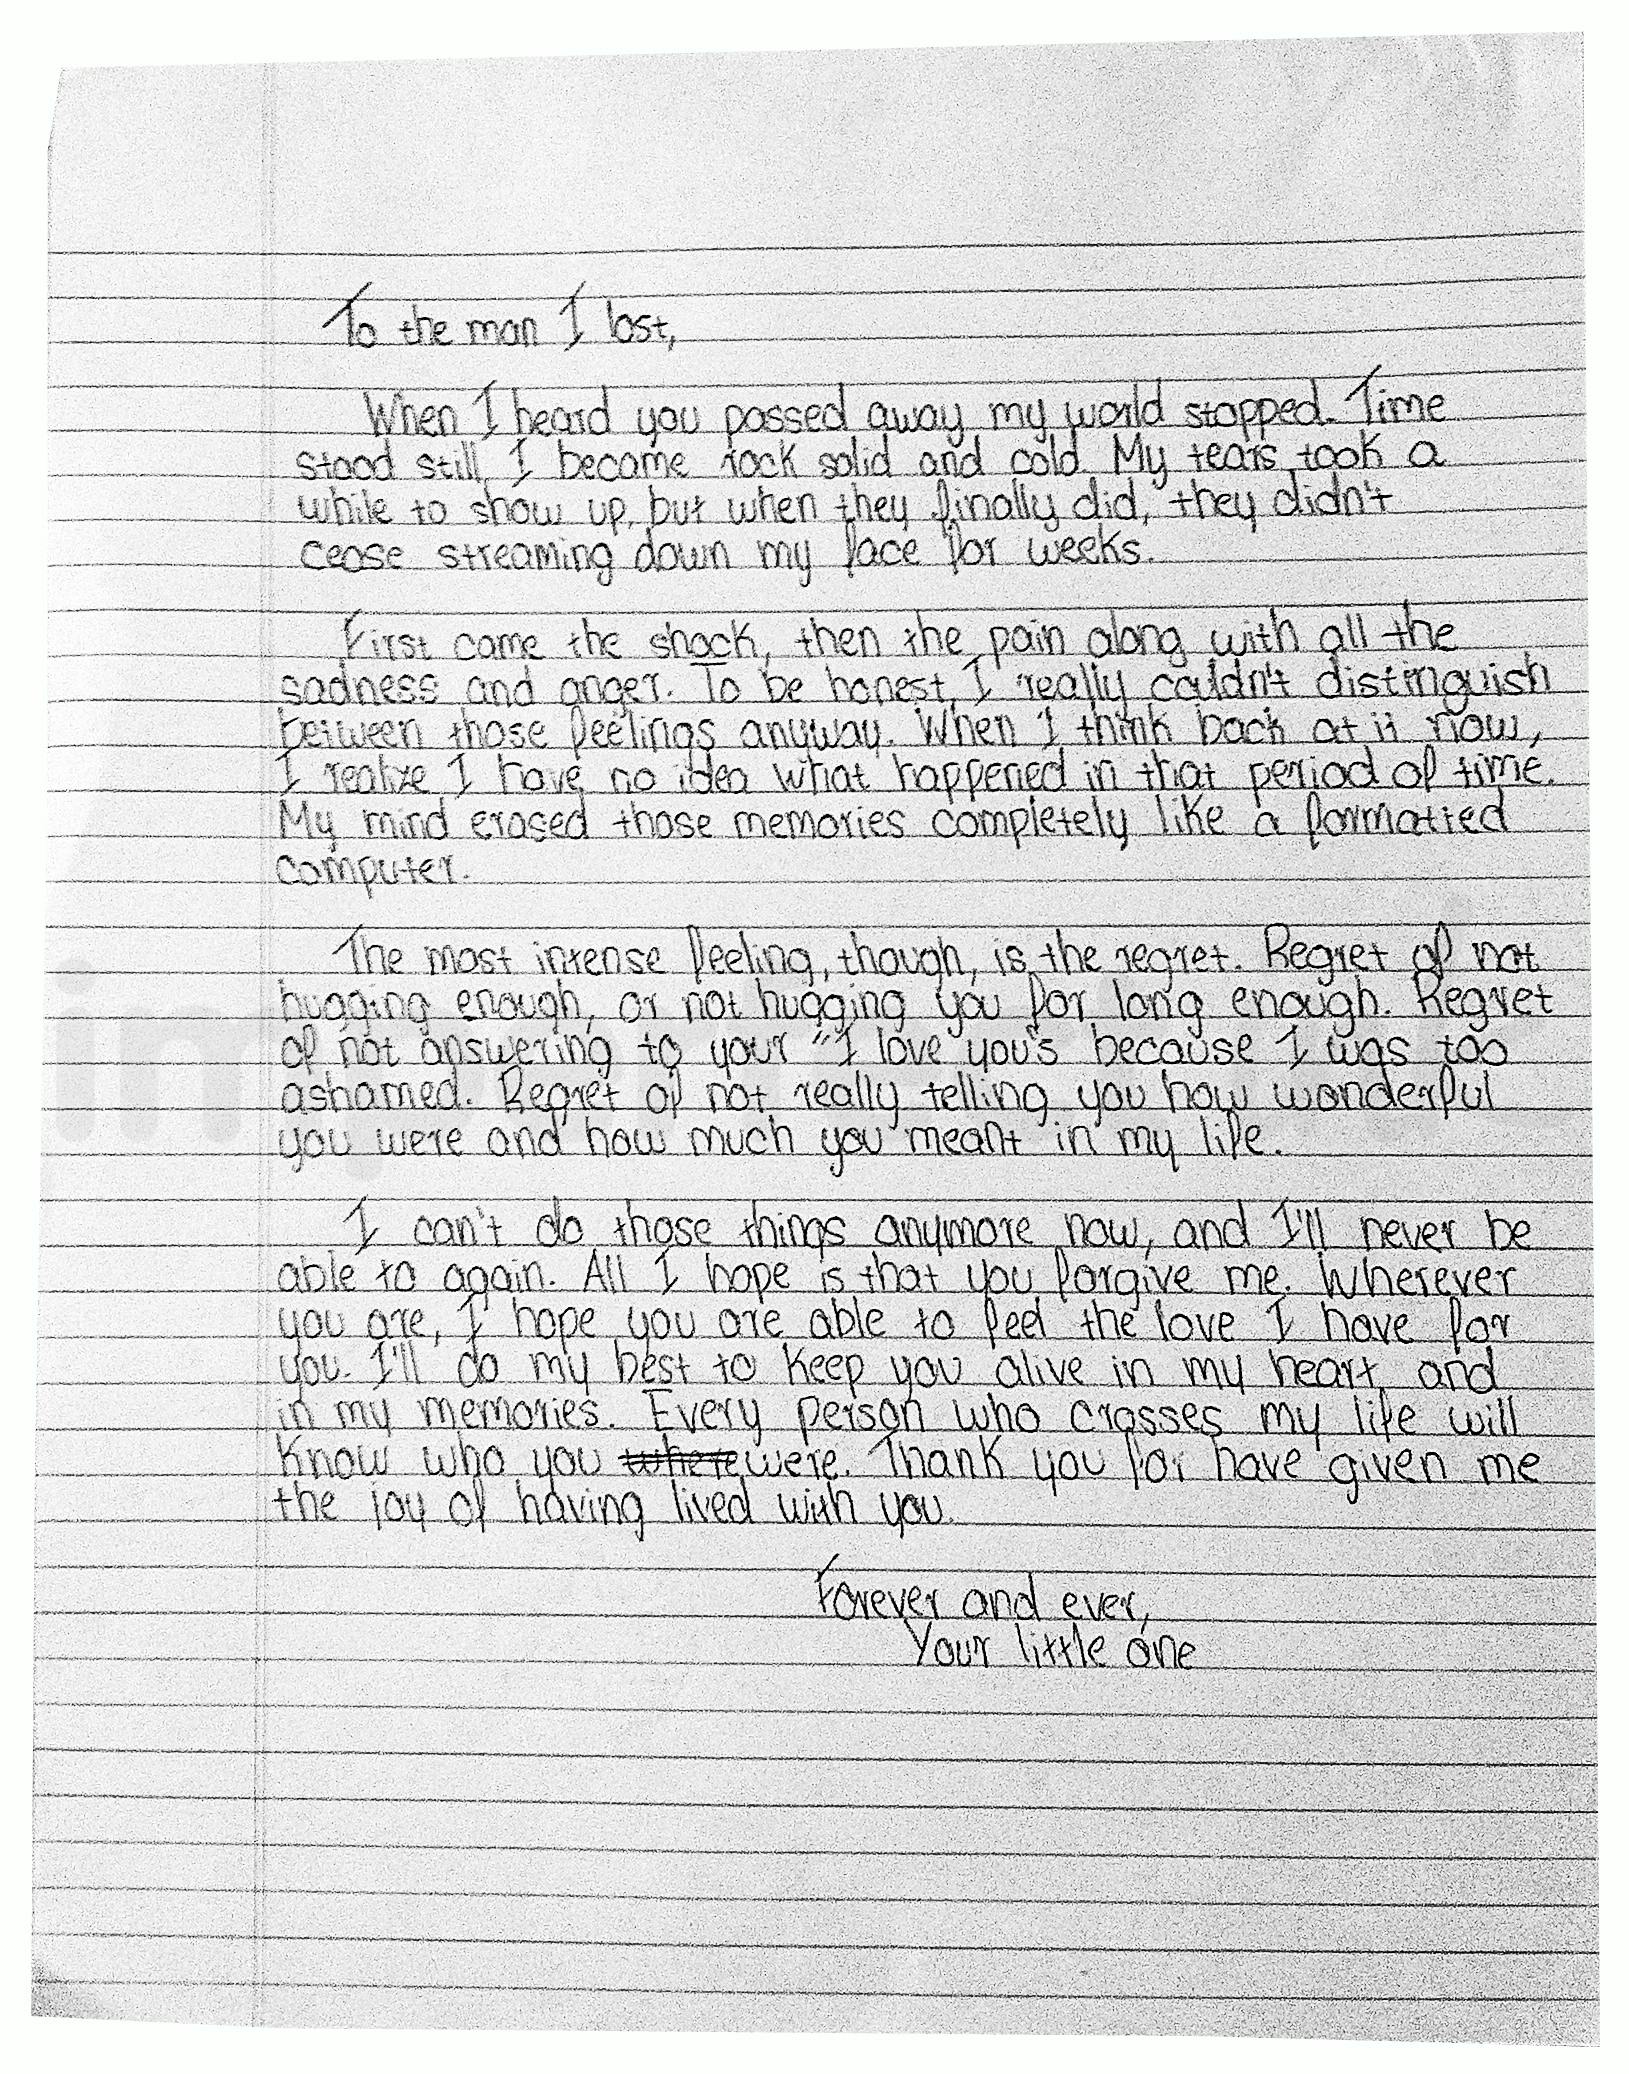 To the man I lost,
When I heard you passed away my world stopped. Time
stood still, I became rock solid and cold. My tears took a
while to show up, but when they finally did, they didn't
cease streaming down my face for weeks.
First came the shock, then the pain along with all the
sadness and anger. To be honest, I really couldn't distinguish
between those feelings anyway. When I think back at it now,
I realize I have no idea what happened in that period of time.
My mind erased those memories completely like a formatted
computer.
The most intense feeling, though, is the regret. Regret of not
hugging enough, or not hugging you for long enough. Regret
of not answering to your "I love you's because I was too
ashamed. Regret of not really telling you how wonderful
you were and how much you meant in my life.
I can't do those things anymore now, and I'll never be
able to again. All I hope is that you forgive me. Wherever
you are, I hope you are able to feel the love I have for
you. I'll do my best to keep you alive in my heart and
in my memories. Every person who crosses my life will
know who you where were. Thank you for have given me
the joy of having lived with you.
Forever and ever,
Your little one